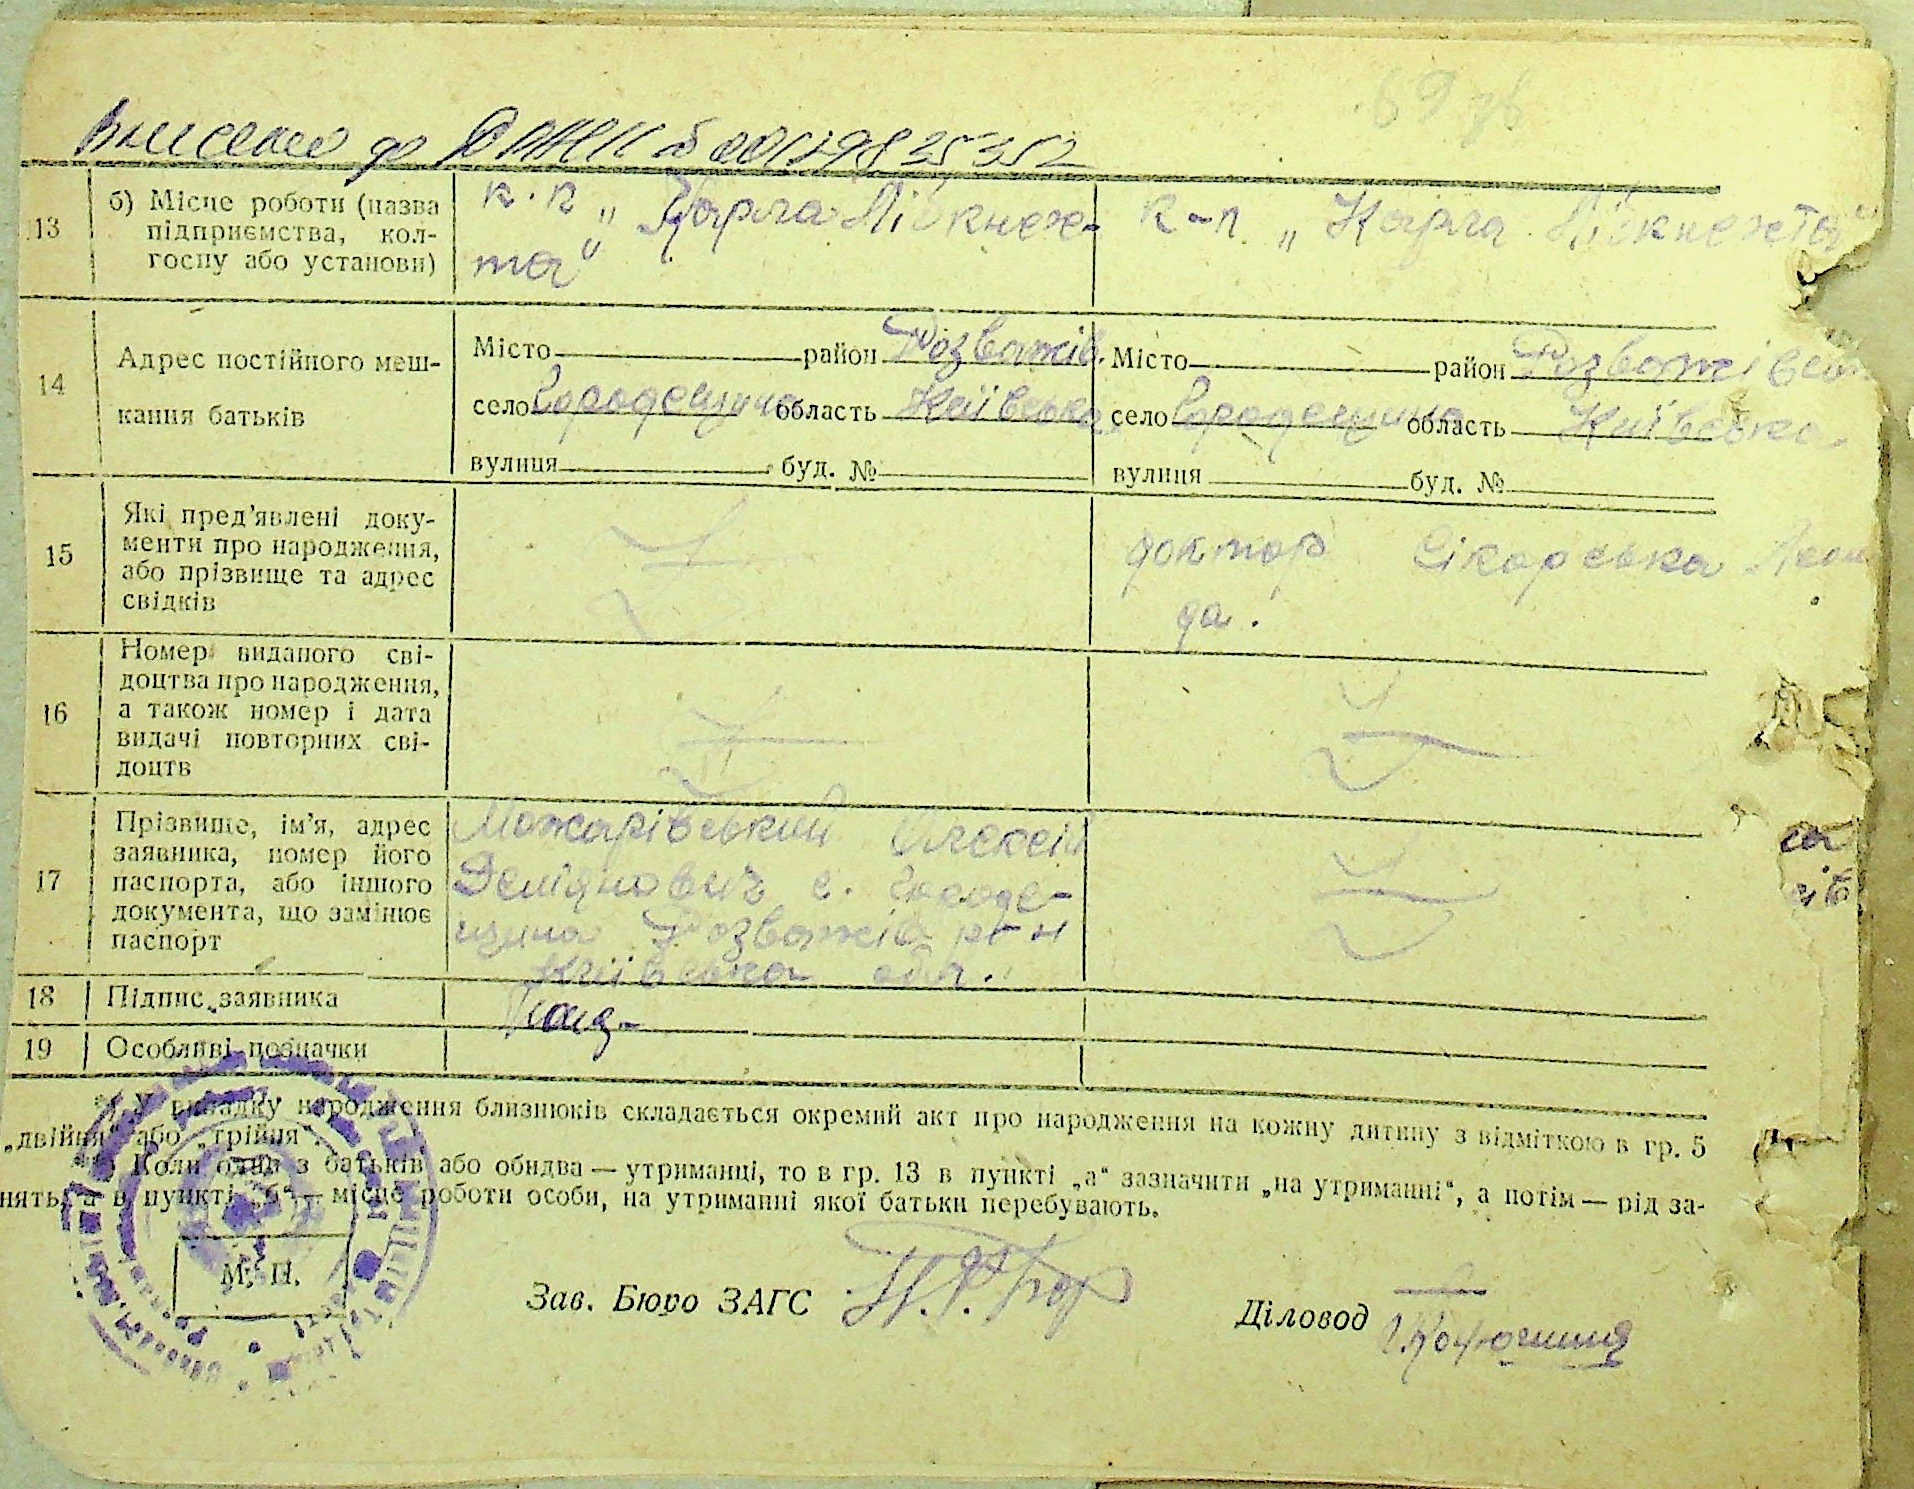 69 зв
Внесено до ДРАЦС 00129835352
13
б) Місце роботи (назва підприємства, колгоспу або установи)
к-п „Карла Лібкнехта“
к-п „Карла Лібкнехта“
14
Адрес постійного мешкання батьків
Місто район Розважів.
село Городещина область Київська
вулиця буд. №
Місто район Розважівсь
село Городещина область Київська.
вулиця буд. №
15
Які пред’явлені документи про народження, або прізвище та адрес свідків
доктор Сікорська Леоні
да.
16
Номер виданого свідоцтва про народження, а також номер і дата видачі повторних свідоцтв
17
Прізвище, ім’я, адрес заявника, номер його паспорта, або іншого документа, що замінює паспорт
Можарівський Олексій
Деміднович с. Городе-
щина Розважів р-н
Київська обл.
18
Підпис заявника
19
Особливі позначки
*) У випадку народження близнюків складається окремий акт про народження на кожну дитину з відміткою в гр. 5
„двійня“ або „трійня“.
Коли один з батьків або обидва — утриманці, то в гр. 13 в пункті „а“ зазначити „на утриманні“, а потім — рід за-
нять, а в пункті „б“ — місце роботи особи, на утриманні якої батьки перебувають.
М. П.
Зав. Бюро ЗАГС
Діловод